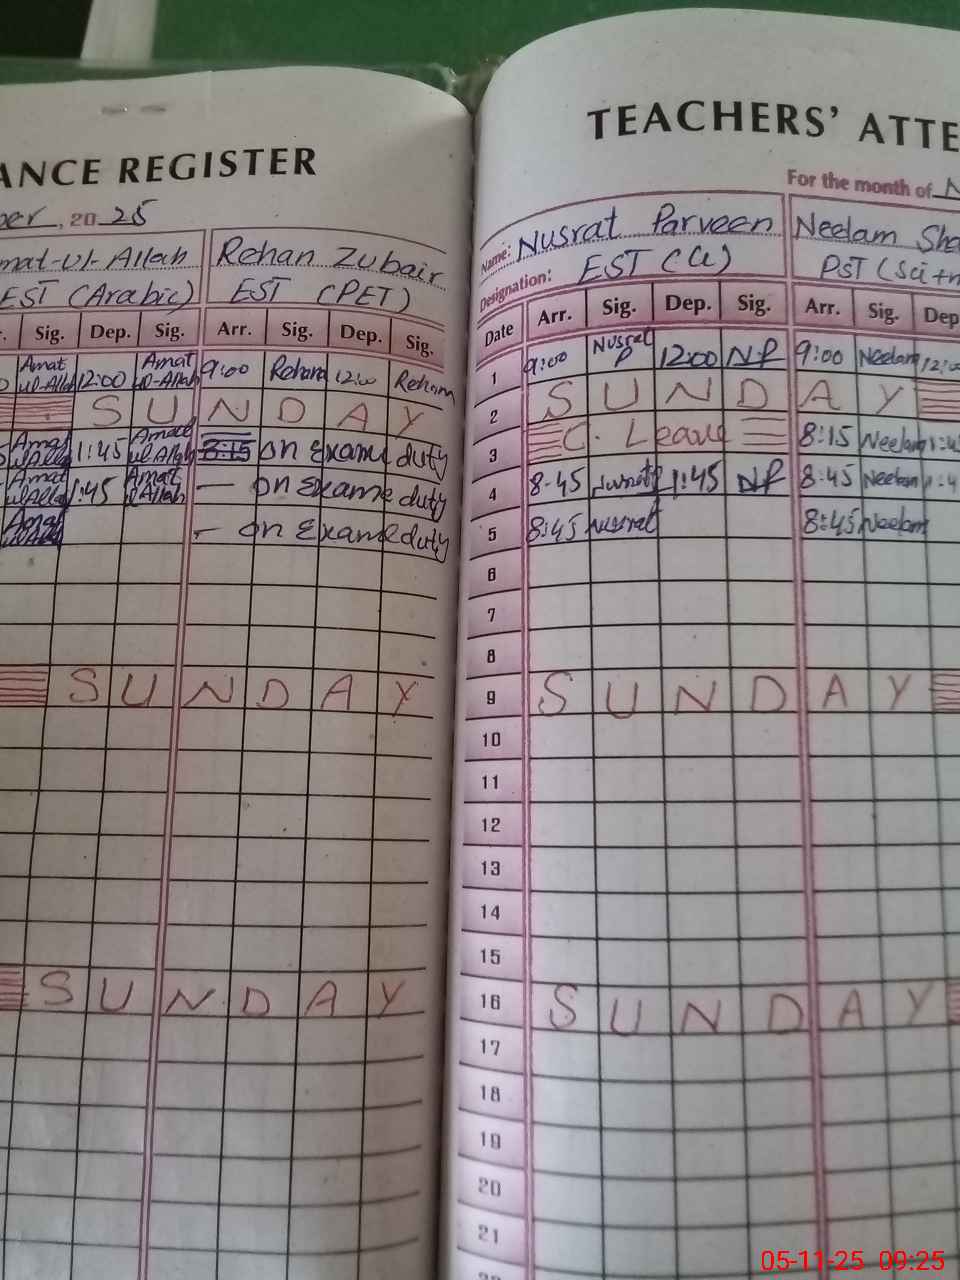 ANCE REGISTER
ber, 2025
mat-ul-Allah Rehan Zubair
EST (Arabic) EST (PET)
Sig. Dep. Sig. Arr. Sig. Dep. Sig.
Amat ul-Allah 12:00 Amat ul-Allah 9:00 Rehana 12:00 Reham
SUNDAY
Amat ul Allah 1:45 Amat ul Allah 8:15 on Exame duty
Amat ul Alla 1:45 Amat ul Allah — on Exame duty
Amat ul Alla - on Exame duty
SUNDAY
SUNDAY
TEACHERS' ATTE
For the month of N
Name: Nusrat Parveen Neelam Sha
Designation: EST (G) PST (Sci+m
Date Arr. Sig. Dep. Sig. Arr. Sig. Dep
1 9:00 Nusrat P 12:00 NP 9:00 Neelam 12:0
2 SUNDAY
3 C. Leave 8:15 Neelam 1:4
4 8-45 1:45 NP 8:45 Neelam 1:4
5 8:45 Nusrat 8:45 Neelam
6
7
8
9 SUNDAY
10
11
12
13
14
15
16 SUNDAY
17
18
19
20
21
05-11-25 09:25